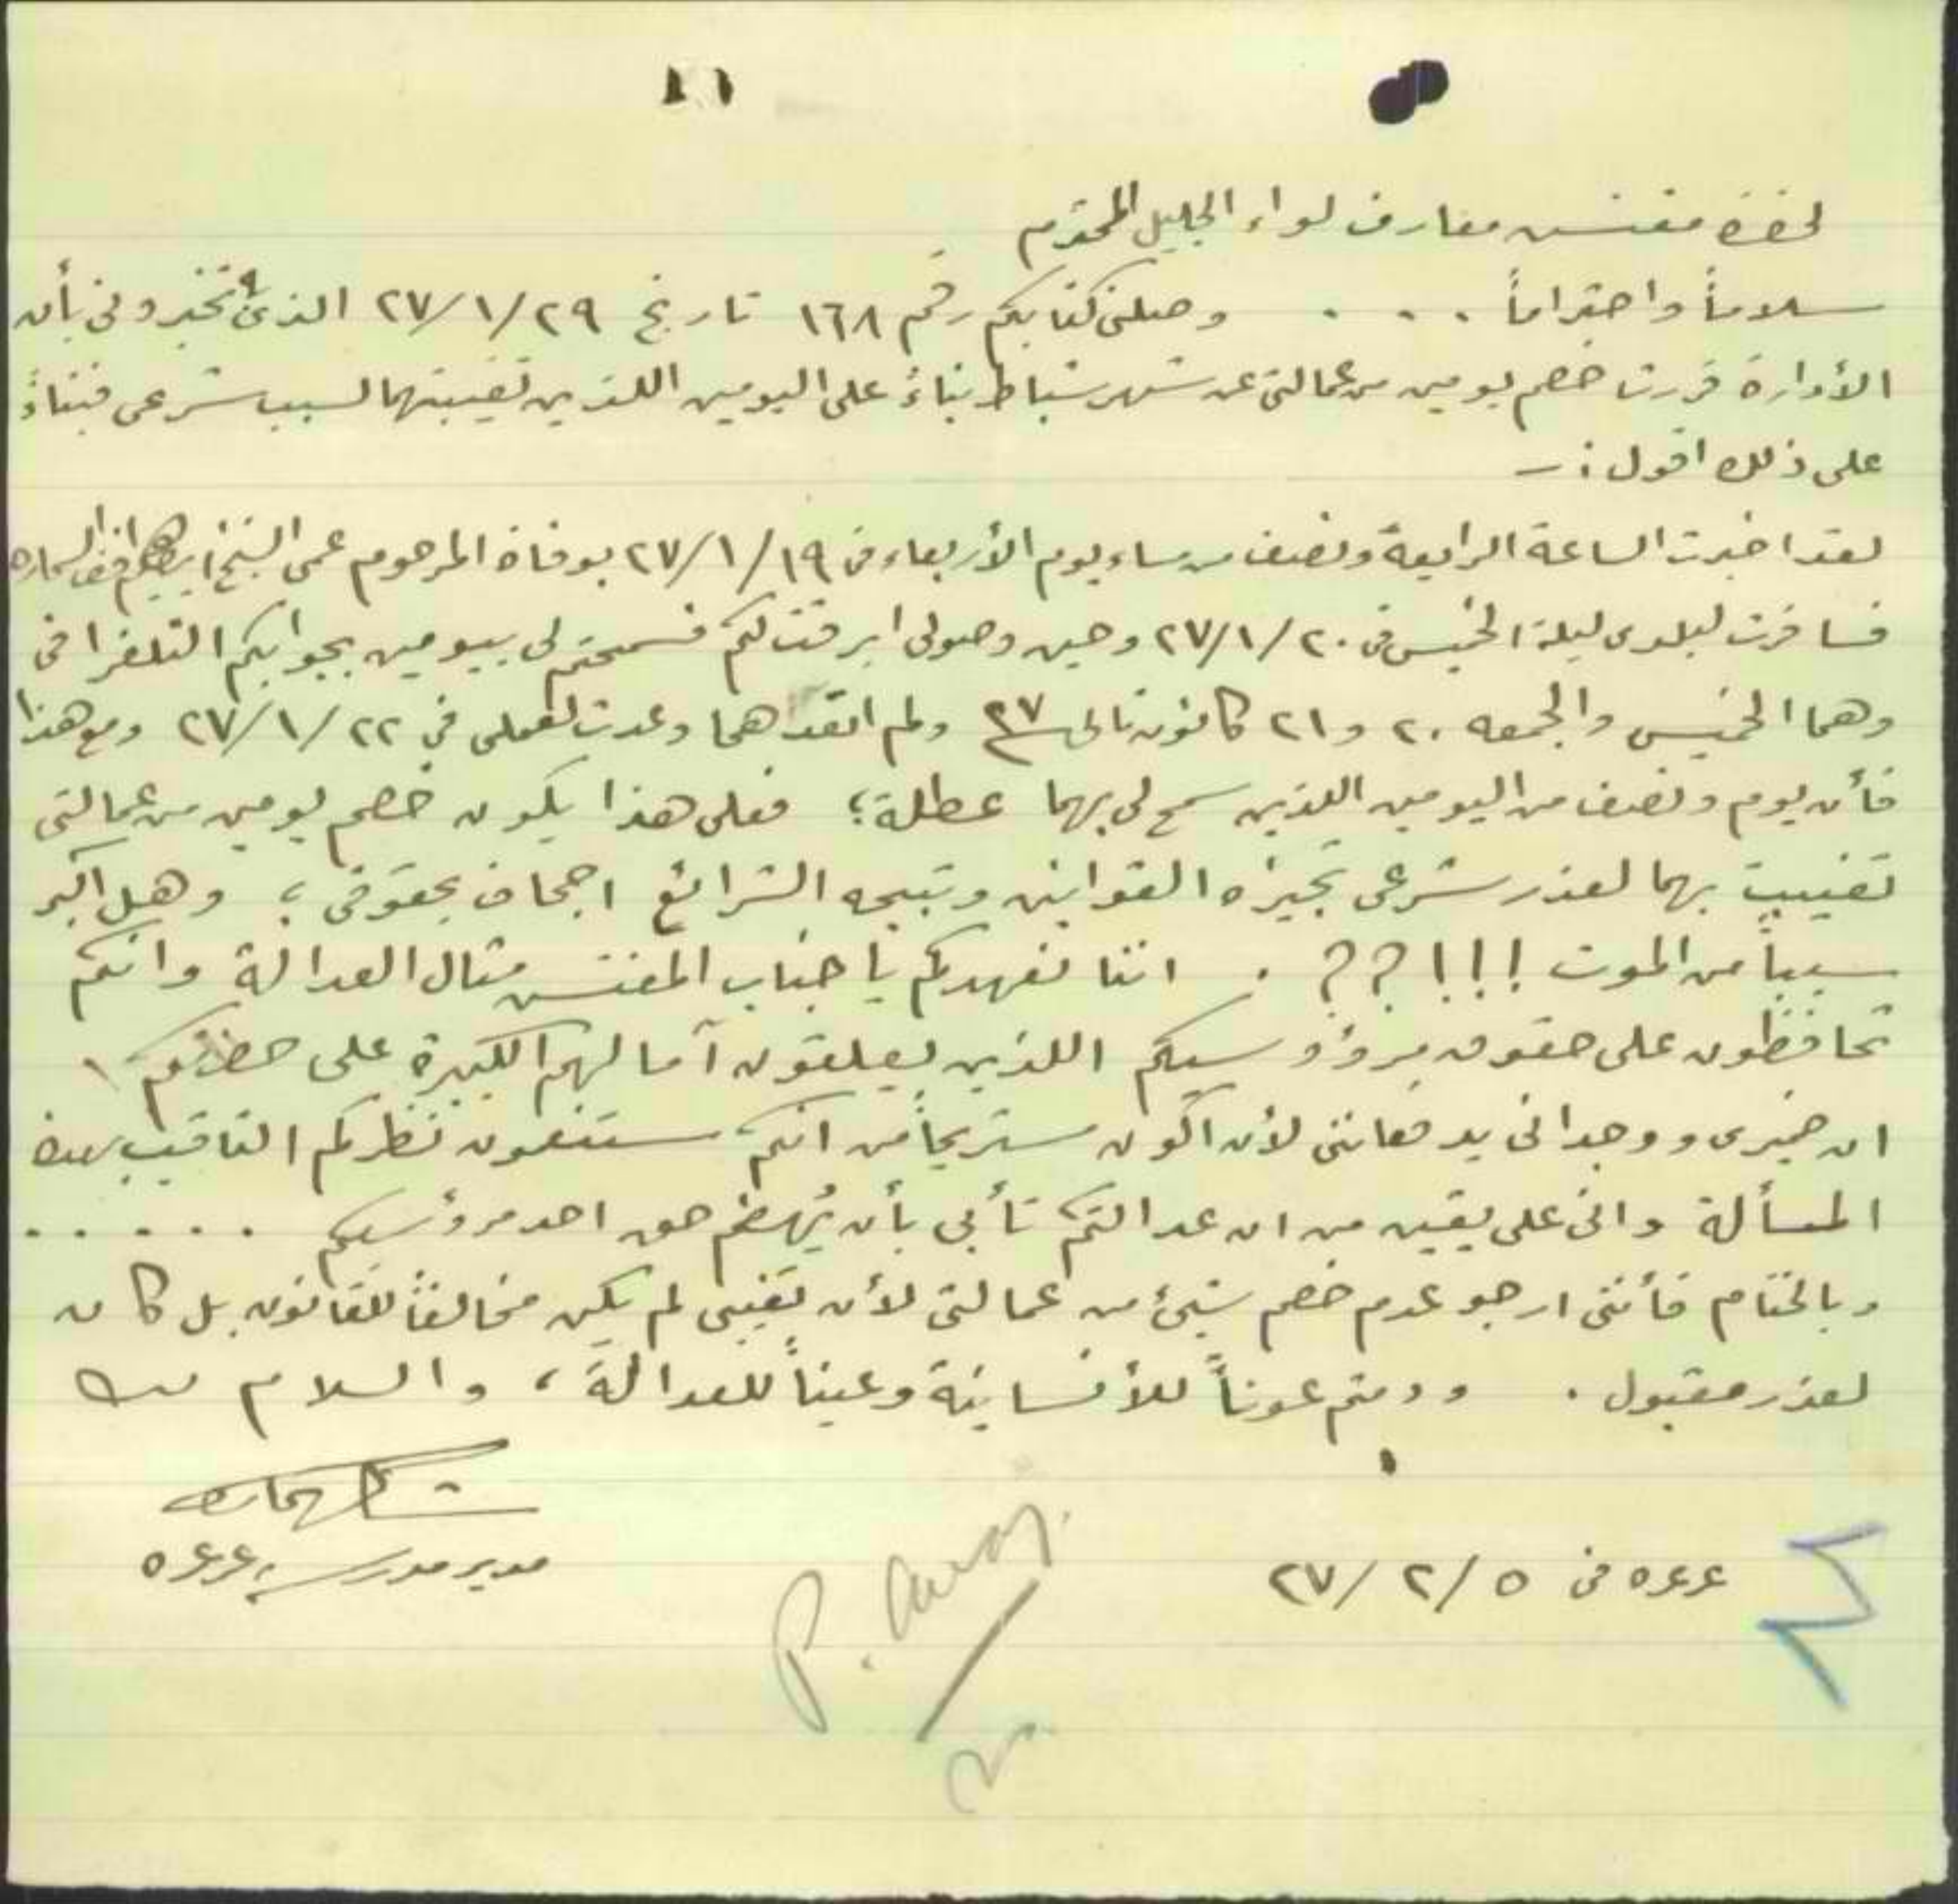 لحضرة مفتش معارف لواء الجليل المحترم
سلاماً واحتراماً . . . . وصلني كتابكم رقم ١٦٨ تاريخ ٢٧/١/٢٩ الذي تخبروني بأن
الأدارة قررت خصم يومين من عمالتي عن شهر شباط بناءً على اليومين اللذين تغيبتهما لسبب شرعي فبناءً
على ذلك اقول :-
لقد اخبرت الساعة الرابعة ونصف من مساء يوم الأربعاء في ٢٧/١/١٩ بوفاة المرحوم عمي الشيخ ابراهيم افندي
فسافرت لبلدي ليلة الخميس في ٢٧/١/٢٠ وحين وصولي ابرقت لكم فسمحتم لي بيومين بجوابكم التلغرافي
وهما الخميس والجمعه ٢٠ و ٢١ كانون ثاني سنة ٢٧ ولم اتعداهما وعدت لعملي في ٢٧/١/٢٢ ومع هذا
فأن يوم ونصف من اليومين اللذين سمح لي بهما عطلة؛ فعلى هذا يكون خصم يومين من عمالتي
تغيبت بهما لعذر شرعي تجيزه القوانين وتبيحه الشرائع اجحاف بحقوقي؛ وهل اكبر
سبباً من الموت !!! ؟؟ . اننا نعهدكم يا جناب المفتش مثال العدالة وانكم
تحافظون على حقوق مرؤوسيكم اللذين يعلقون آمالهم الكبيرة على حضرتكم
ان ضميري ووجداني يدفعانني لأن اكون مستريحاً من انكم ستنعمون نظركم الثاقب بهذه
المسألة واني على يقين من ان عدالتكم تأبى بأن يُهضم حق احد مرؤسيكم . . . . .
وبالختام فأنني ارجو عدم خصم شيئ من عمالتي لأن تغيبي لم يكن مخالفاً للقانون بل كان
لعذر مقبول . ودمتم عوناً للأنسانية وعيناً للعدالة، والسلام
مدير مدرسة عرعره
عرعره في ٢٧/٢/٥
P. away.